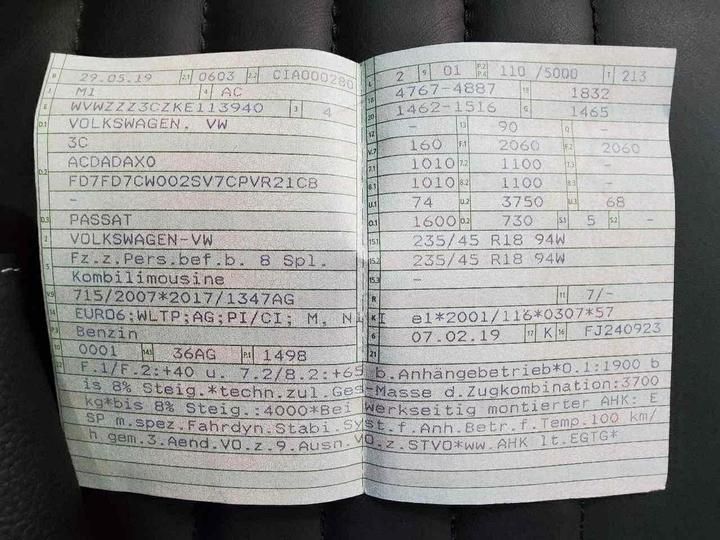 B 29.05.19 2.1 0603 2.2 CIA000280
J M1 4 AC
E WVWZZZ3CZKE113940 3 4
D.1 VOLKSWAGEN, VW
3C
D.2 ACDADAX0
FD7FD7CW002SV7CPVR21C8
-
D.3 PASSAT
2 VOLKSWAGEN-VW
5 Fz.z.Pers.bef.b. 8 Spl.
Kombilimousine
V.9 715/2007*2017/1347AG
14 EURO6;WLTP;AG;PI/CI; M, N1 I
P.3 Benzin
10 0001 14.1 36AG P.1 1498
L 2 9 01 P.2 P.4 110 /5000 T 213
18 4767-4887 19 1832
20 1462-1516 G 1465
12 - 13 90 Q -
V.7 160 F.1 2060 F.2 2060
7.1 1010 7.2 1100 7.3 -
8.1 1010 8.2 1100 8.3 -
U.1 74 U.2 3750 U.3 68
O.1 1600 O.2 730 S.1 5 S.2 -
15.1 235/45 R18 94W
15.2 235/45 R18 94W
15.3 -
R 11 7/-
K e1*2001/116*0307*57
6 07.02.19 17 K 16 FJ240923
21
22 F.1/F.2:+40 u. 7.2/8.2:+65 b.Anhängebetrieb*O.1:1900 b
is 8% Steig.*techn.zul.Ges-Masse d.Zugkombination:3700
kg*bis 8% Steig.:4000*Bei werkseitig montierter AHK: E
SP m.spez.Fahrdyn.Stabi.Syst.f.Anh.Betr.f.Temp.100 km/
h gem.3.Aend.VO.z.9.Ausn.VO.z.STVO*ww.AHK lt.EGTG*